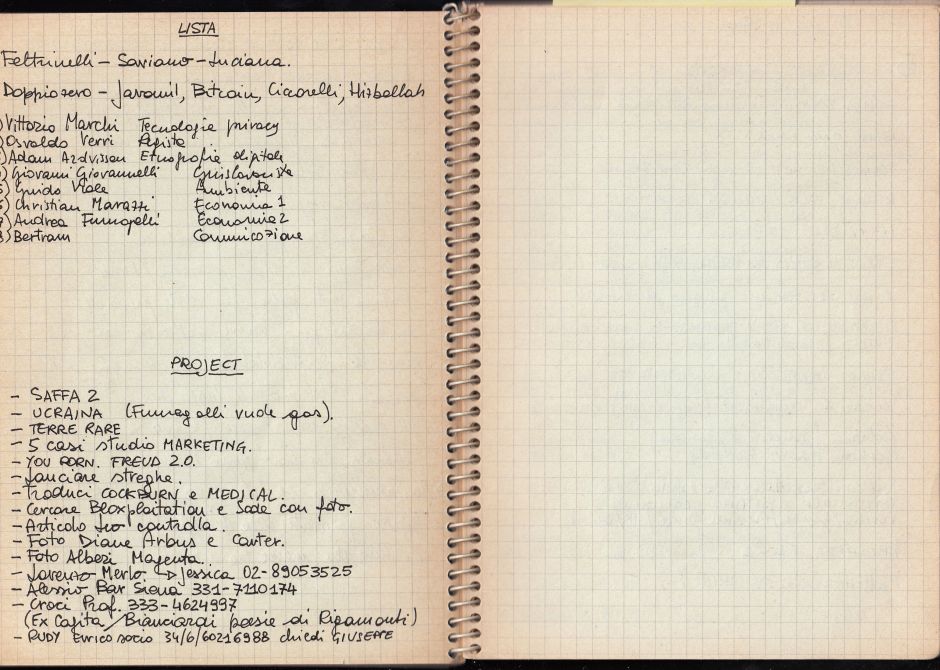 LISTA
Feltrinelli - Saviano - Luciana.
Doppiozero - Javamil, Bitcoin, Ciccarelli, Hizbollah
Vittorio Marchi Tecnologie privacy
Osvaldo Verri
Adam Ardvisson Etnografia digitale
Giovanni Giovannelli Guislavorista
Guido Viale Ambiente
Christian Marazzi Economia 1
Andrea Fumagalli Economia 2
8) Bertram Comunicazione
PROJECT
- SAFFA 2
- UCRAINA (Fumagalli vude gas).
- TERRE RARE
- 5 casi studio MARKETING.
- YOU PORN. FREUD 2.0.
- Lanciare streghe.
- Traduci COCKBURN e MEDICAL.
- Cercare Bloxploitation e Sade con foto.
- Articolo controlla.
- Foto Diane Arbus e Carter.
- Foto Alberi Magenta.
- Lorenzo Merlo → Jessica 02-89053525
- Alessio Bar Siena 331-7110174
- Croci Prof. 333-4624997
(Ex Capita / Bianciardi poesie di Rigamonti)
- RUDY Enrico socio 34/6/60216988 chiedi GIUSEPPE